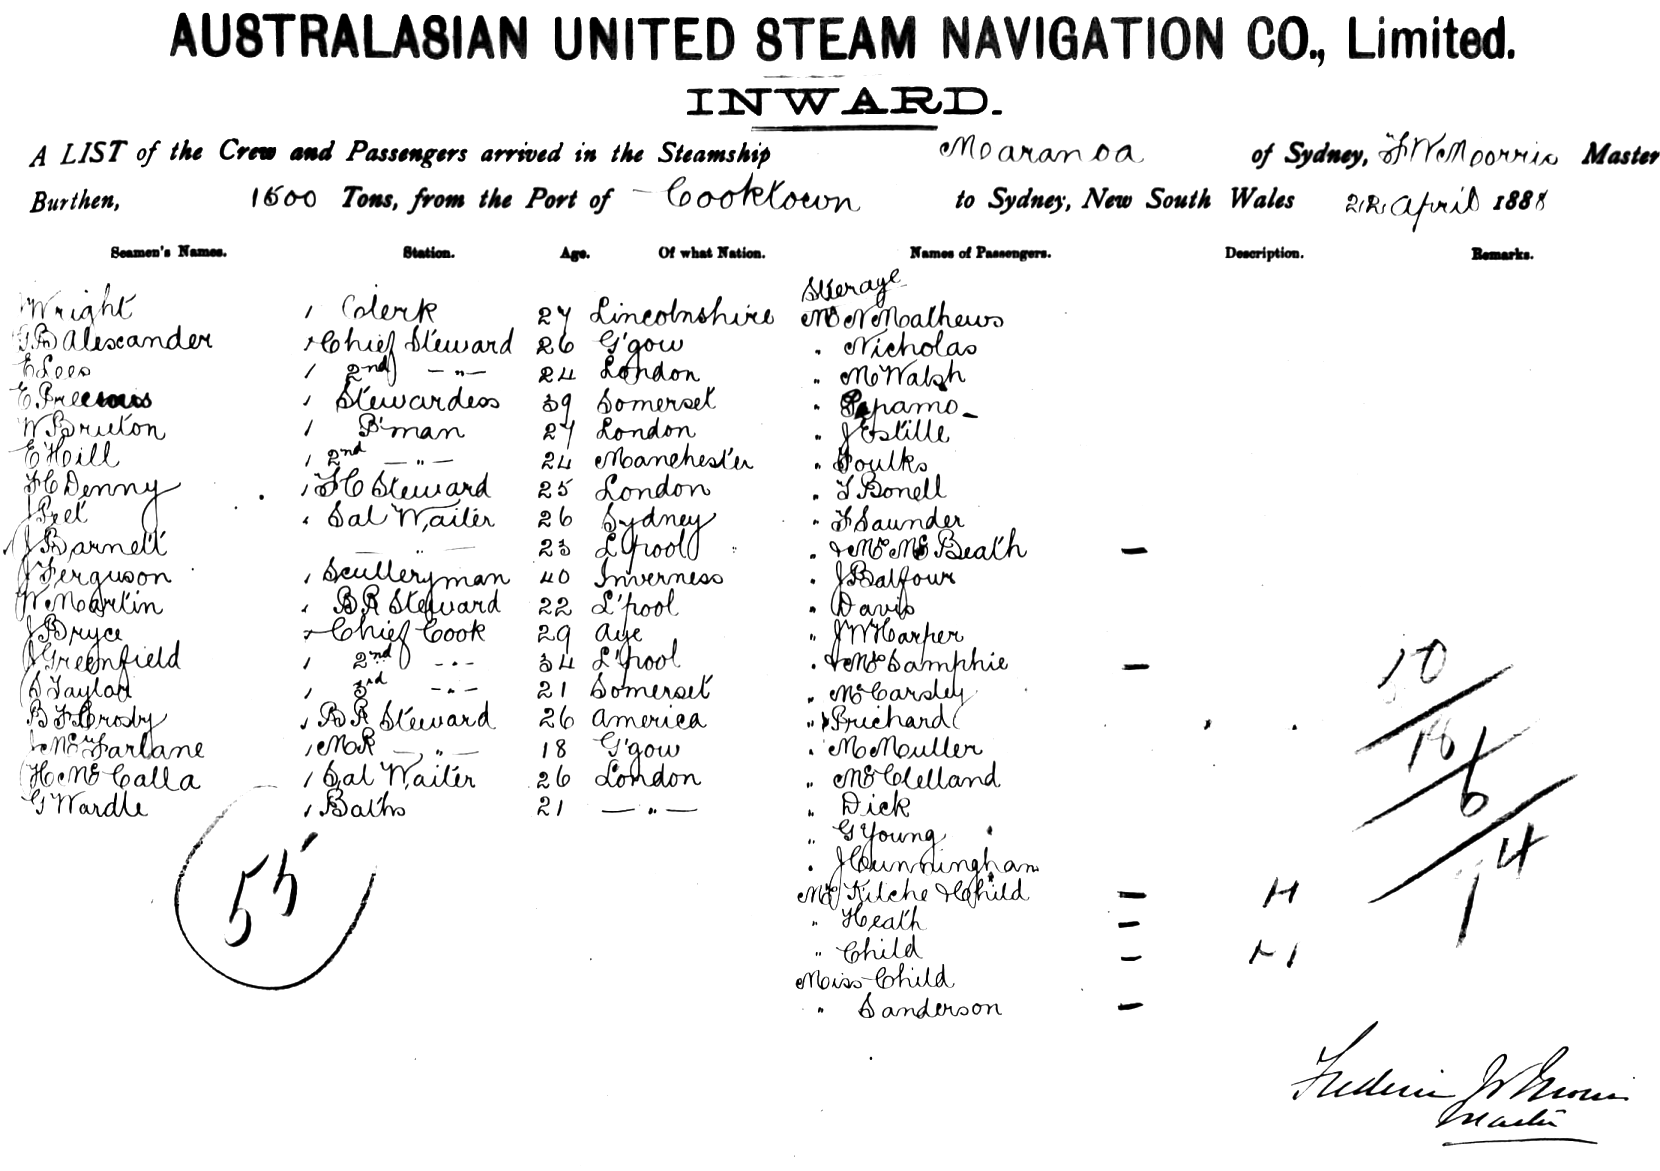 AUSTRALASIAN UNITED STEAM NAVIGATION CO., Limited.
INWARD.
A LIST of the Crew and Passengers arrived in the Steamship Maranoa of Sydney, F W Morris Master
Burthen, 1500 Tons, from the Port of Cooktown to Sydney, New South Wales 22 April 1888
Seamen's Names. Station. Age. Of what Nation. Names of Passengers. Description. Remarks.
Steerage
Wright 1 Clerk 27 Lincolnshire Mr N Mathews
Alexander 1 Chief Steward 26 G'gow " Nicholas
E Lees 1 2nd —"— 24 London " M Walsh
E 1 Stewardess 39 Somerset "
W Bruton 1 B'man 27 London " J Estille
E Hill 1 2nd —"— 24 Manchester " Foulks
F C Denny 1 F C Steward 25 London " T Bonell
J Peel 1 Sal Waiter 26 Sydney " F Saunder
J Barnett —"— 23 L'pool " & Mrs Mc Beath —
J Ferguson 1 Sculleryman 40 Inverness " J Balfour
W Martin 1 B R Steward 22 L'pool " Davis
J Bryce 1 Chief Cook 29 Aye " J W Harper
J Greenfield 1 2nd —"— 34 L'pool " & Mrs Samphie —
S Taylor 1 3rd —"— 21 Somerset " McCarsley
B F Crosby 1 B R Steward 26 America " Prichard
J McFarlane 1 M R —"— 18 G'gow " M Muller
H McCalla 1 Sal Waiter 26 London " McClelland
G Wardle 1 Baths 21 —"— " Dick
" G Young
" J Cunningham
Mrs Kitche & Child —
" Heath —
" Child —
Miss Child
" Sanderson —
55
10
18
6
14
Master